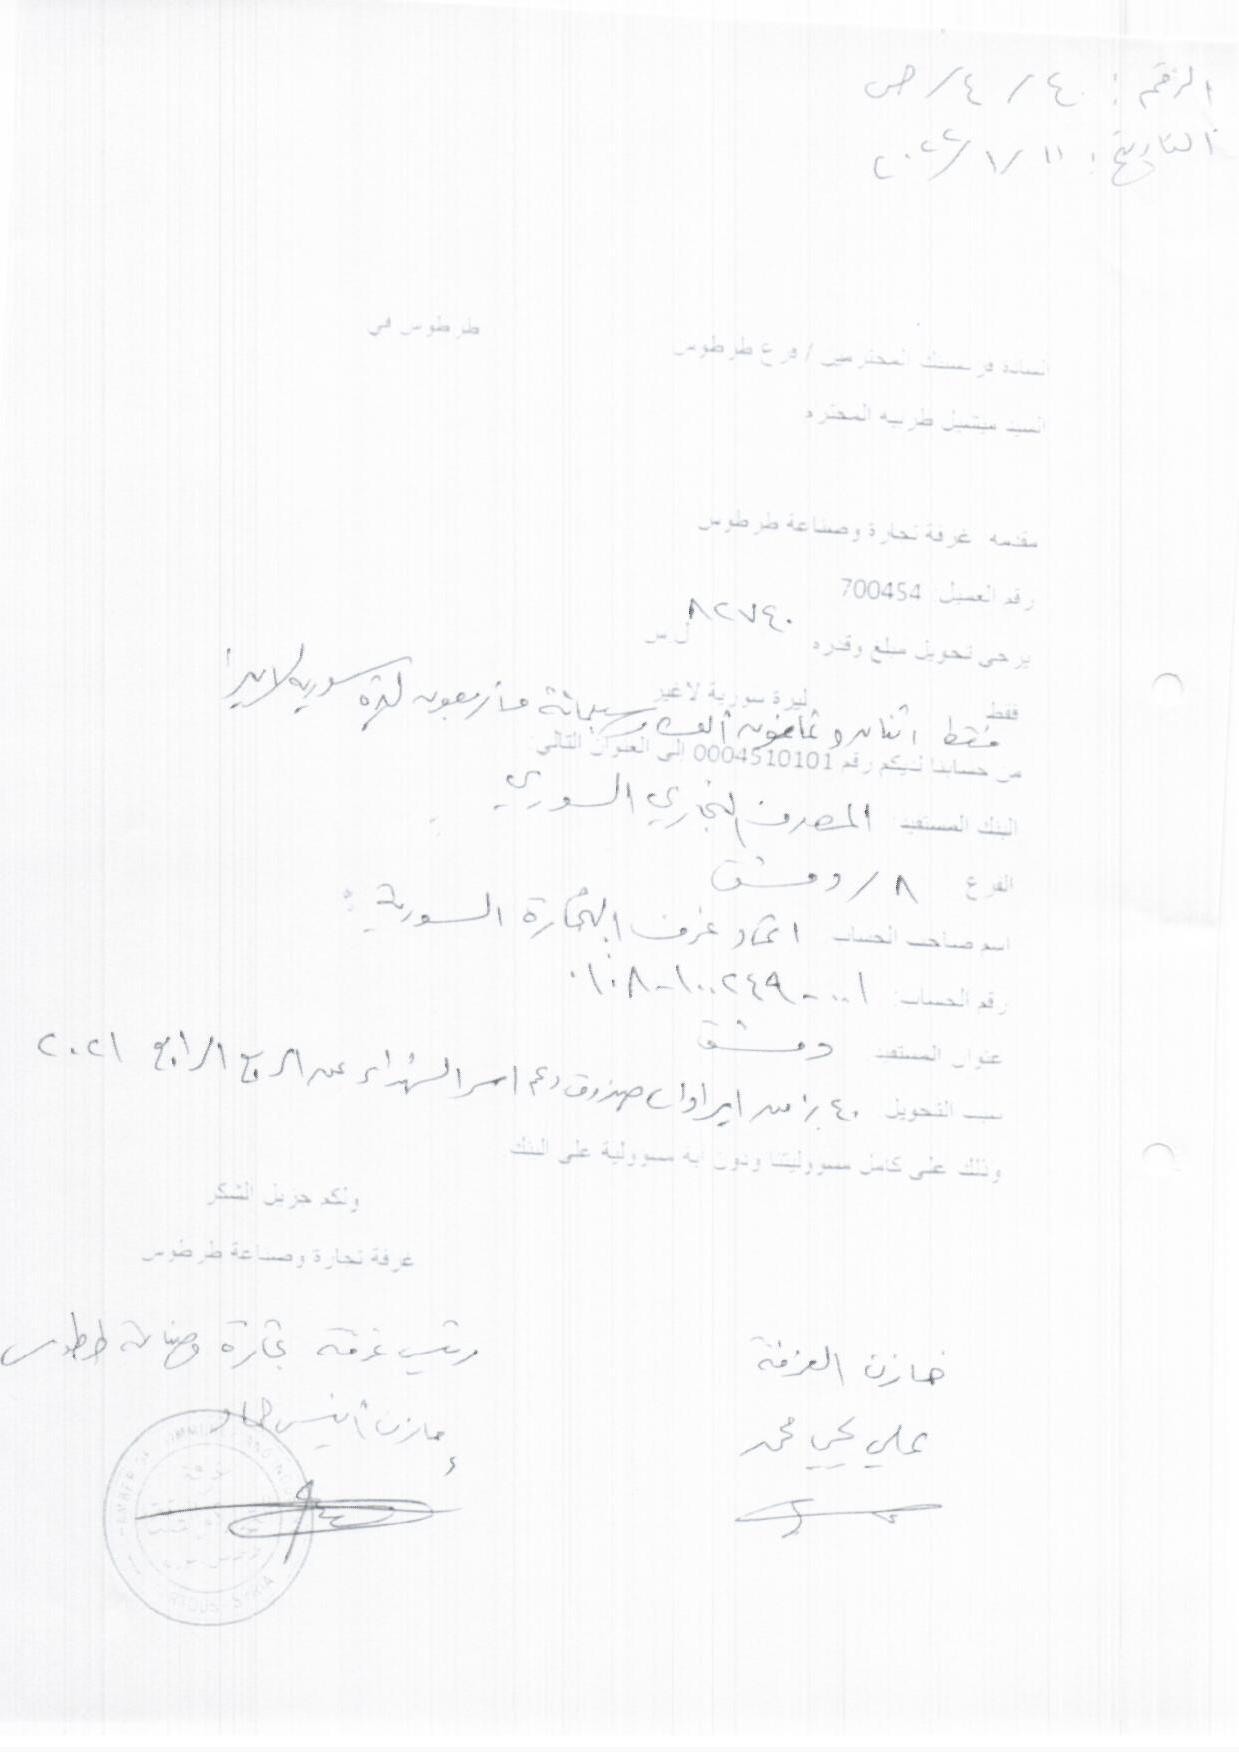 الرقم : ٤٠ / ٤ / ص
التاريخ : ١١ / ١ / ٢٠٢٢
طرطوس في
السادة فرنسبنك المحترمين / فرع طرطوس
السيد ميشيل طربيه المحترم
مقدمه غرفة تجارة وصناعة طرطوس
رقم العميل 700454
يرجى تحويل مبلغ وقدره ٨٢٧٤٠ ل.س
فقط ليرة سورية لاغير
فقط اثنان و ثمانون ألف و سبعمائة و أربعون ليرة سورية لا غير
من حسابنا لديكم رقم 0004510101 إلى العنوان التالي:
البنك المستفيد: المصرف التجاري السوري
الفرع ٨ / دمشق
اسم صاحب الحساب اتحاد غرف التجارة السورية
رقم الحساب: ٠١٠٨-١٠٠٢٤٩-٠٠١
عنوان المستفيد دمشق
سبب التحويل ٤٠٪ من ايرادات صندوق دعم اسر الشهداء عن الربع الرابع ٢٠٢١
وذلك على كامل مسؤوليتنا ودون أية مسؤولية على البنك
ولكم جزيل الشكر
غرفة تجارة وصناعة طرطوس
خازن الغرفة
رئيس غرفة تجارة وصناعة طرطوس
علي يحيى محمد
مازن أنيس حماد